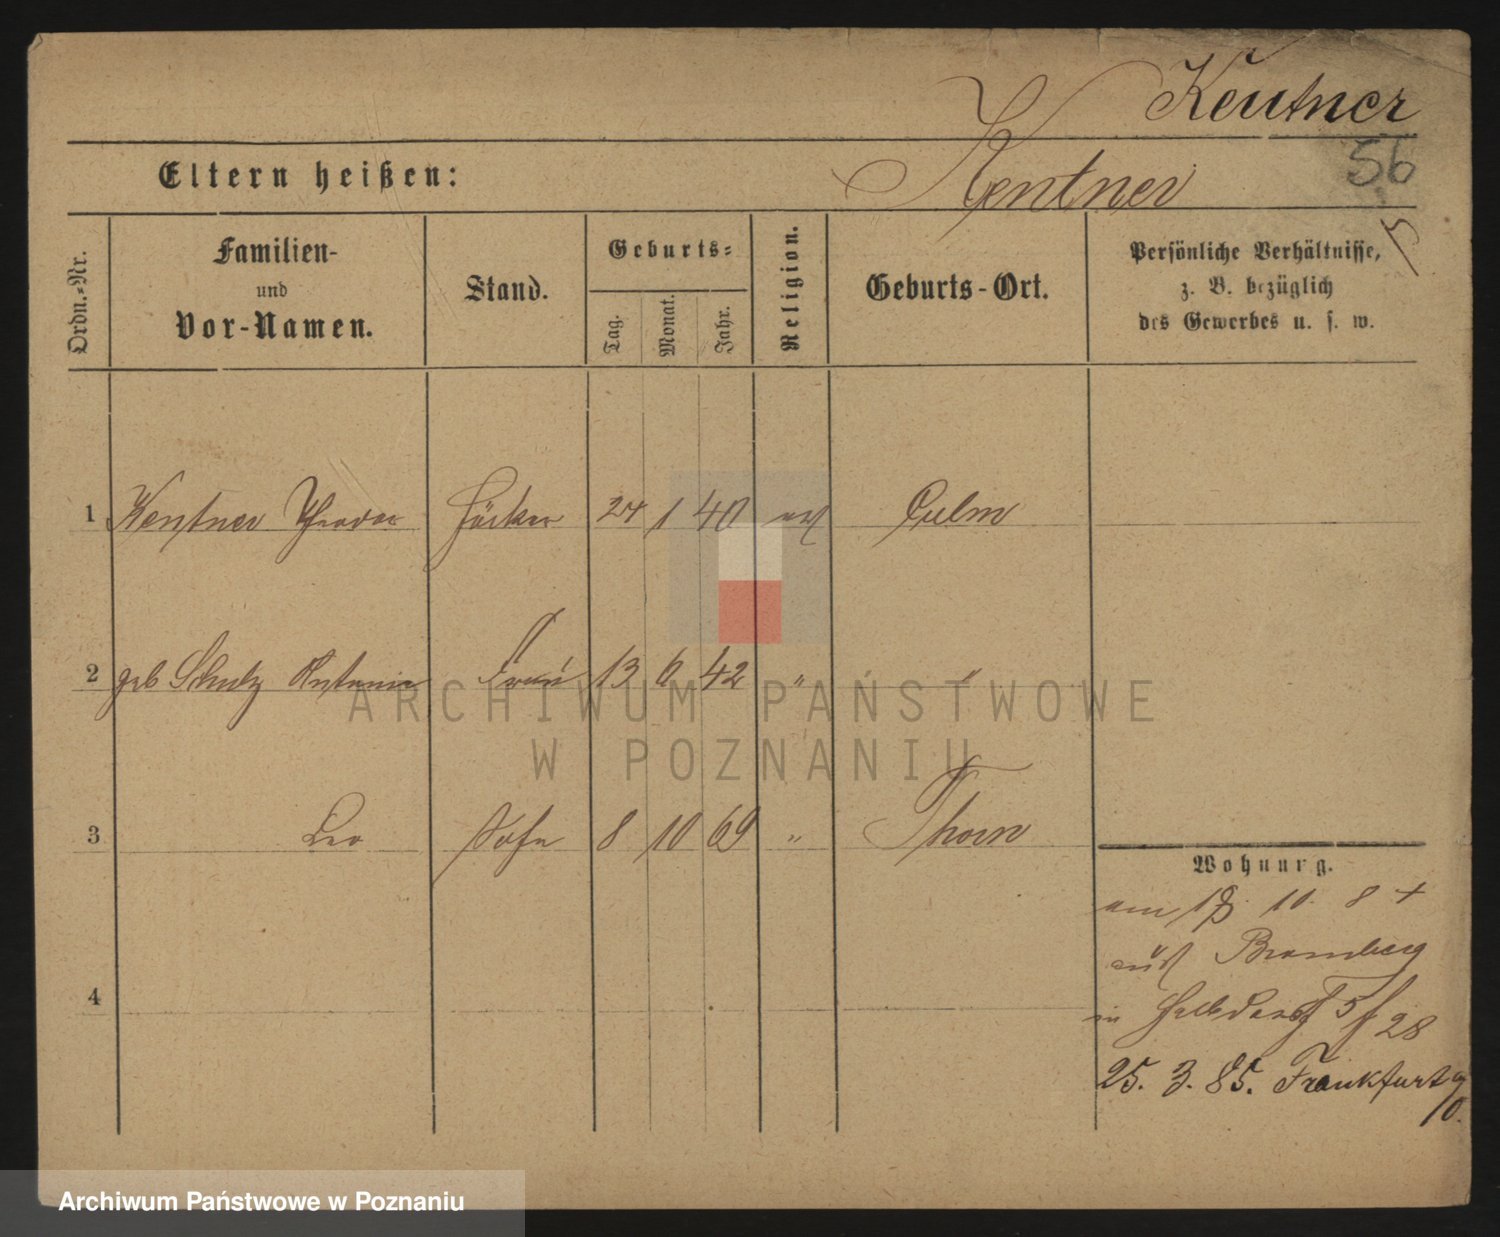 Keutner
Eltern heißen:
Kentner
56
Ordn.-Nr.
Familien-
und
Vor-Namen.
Stand.
Geburts-
Tag.
Monat.
Jahr.
Religion.
Geburts-Ort.
Persönliche Verhältnisse,
z. B. bezüglich
des Gewerbes u. s. w.
1 Kentner Theodor Höcker 24 1 40 ev Culm
2 geb Schulz Antonie Frau 13 6 42 " "
3 Leo Sohn 8 10 69 " Thorn
4
Wohnung.
am 10. 8
aus Bromberg
in Halbdorf 5 28
25. 3. 85. Frankfurt a/O.
ARCHIWUM PAŃSTWOWE
W POZNANIU
Archiwum Państwowe w Poznaniu